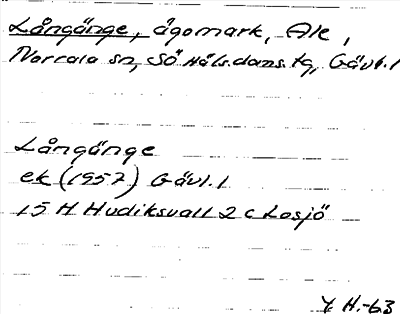 Långänge, ägomark, Ale,
Norrala sn, SÖ Häls. doms. tg, Gävl. l
Långänge
ek (1957) Gävl. l
15 H Hudiksvall 2 c Losjö
Y. H.-63